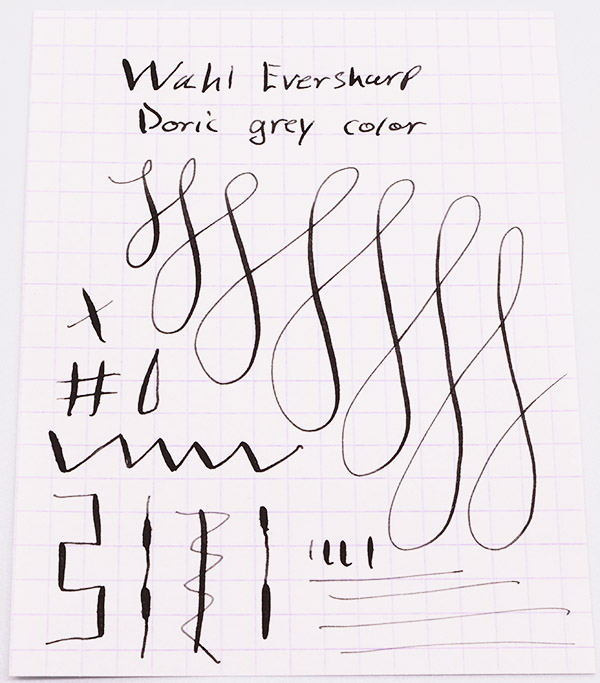 Wahl Eversharp
Doric grey color
x
# 0